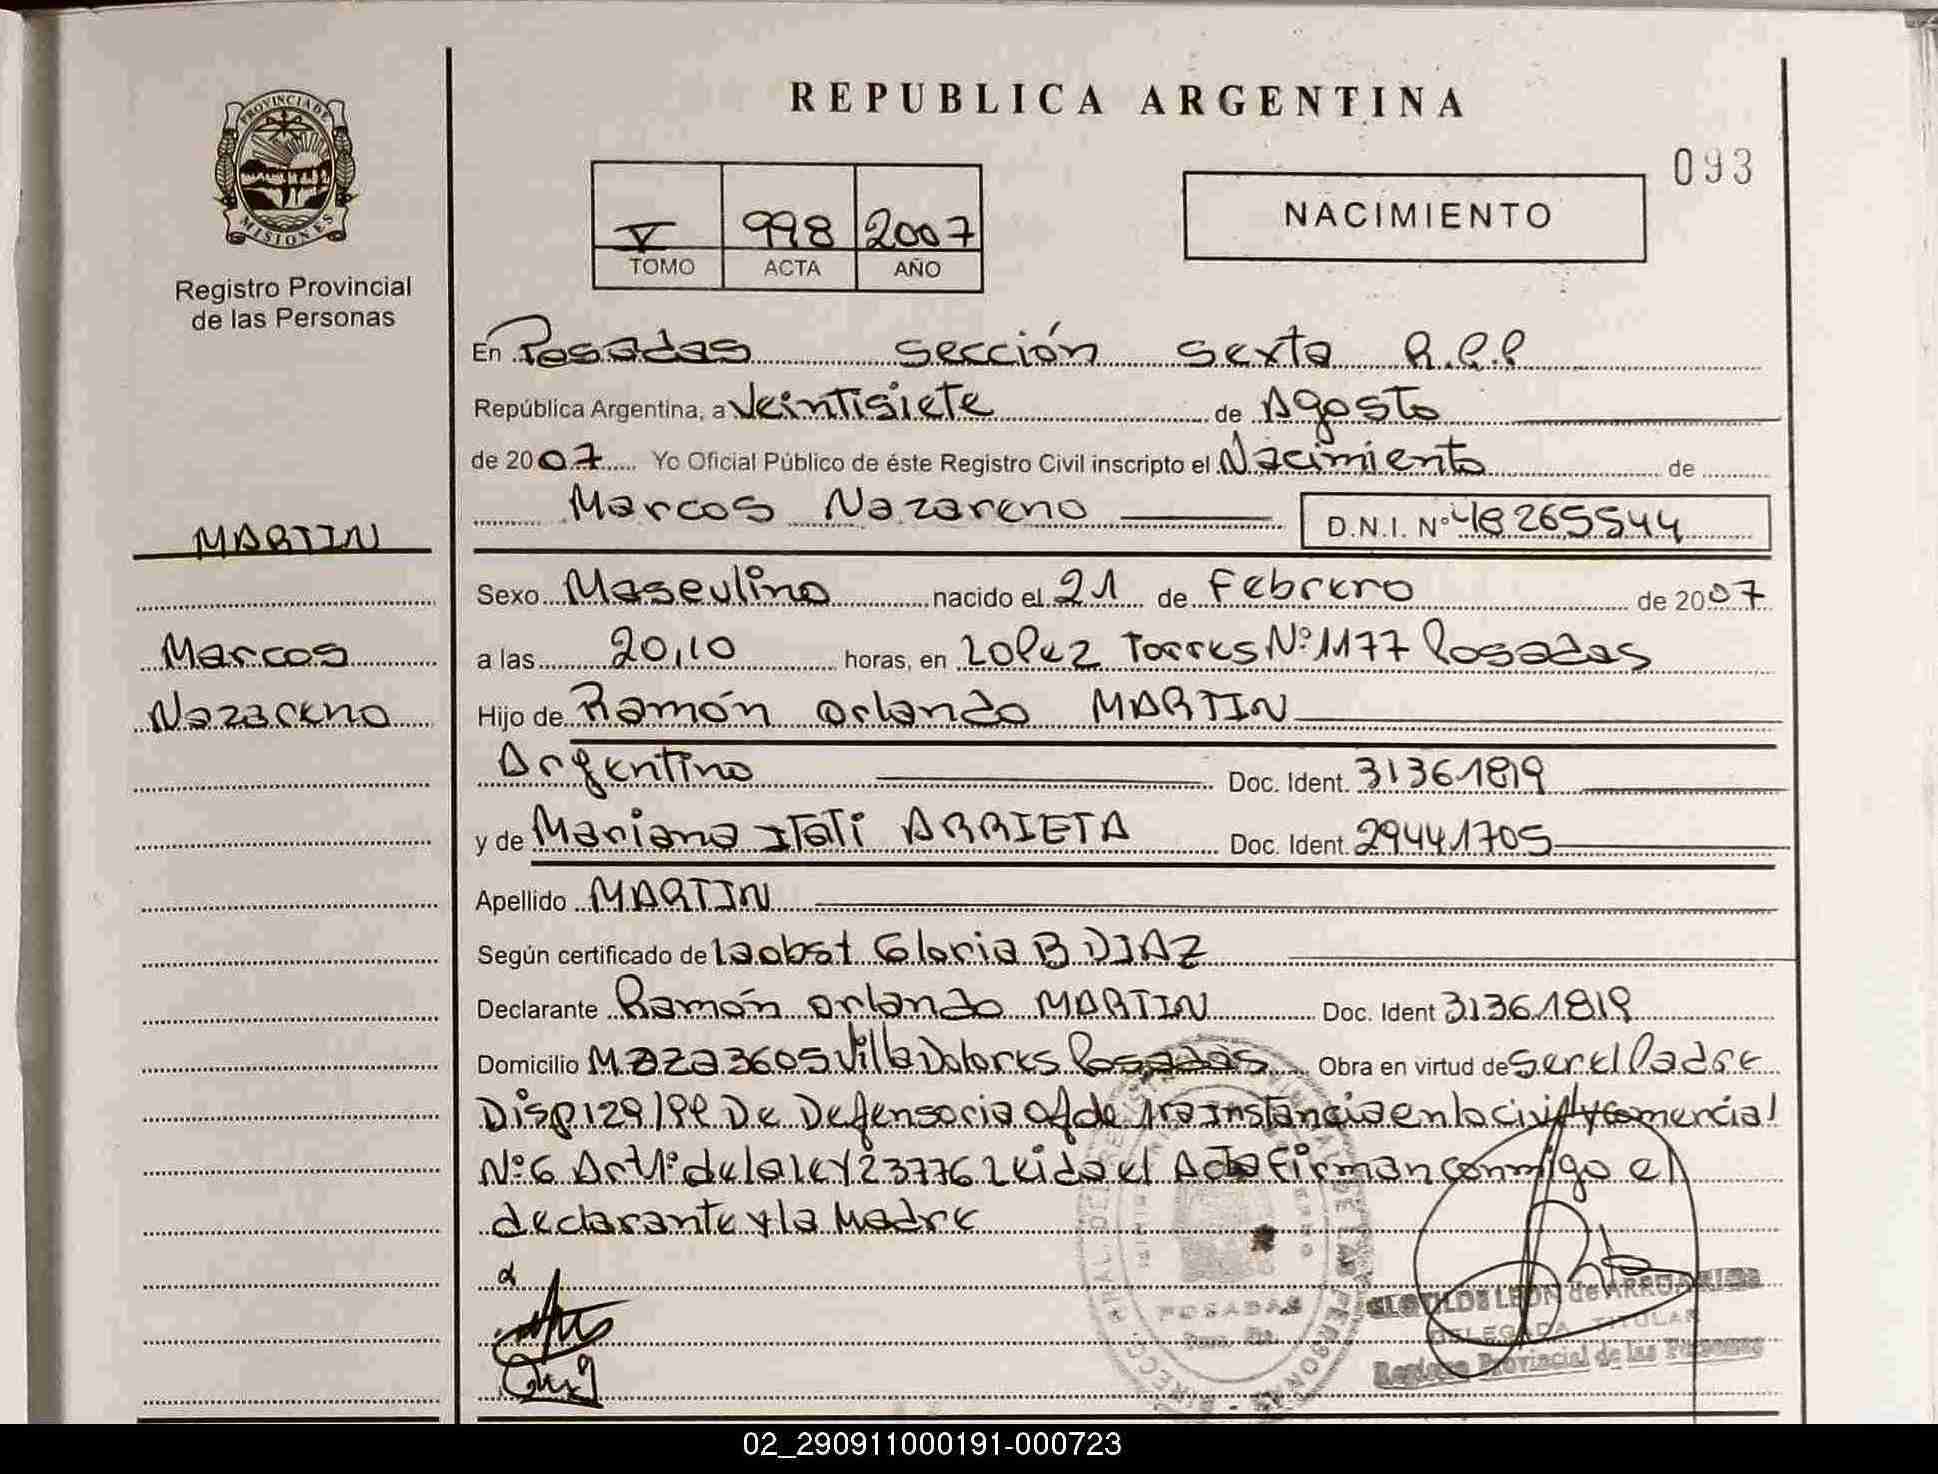 PROVINCIA DE
MISIONES
Registro Provincial
de las Personas
MARTIN
Marcos
Nazareno
REPUBLICA ARGENTINA
093
V 998 2007
TOMO ACTA AÑO
NACIMIENTO
En Posadas sección sexta R.P.P
República Argentina, a Veintisiete de Agosto
de 2007 Yo Oficial Público de éste Registro Civil inscripto el Nacimiento de
Marcos Nazareno D.N.I. Nº 48265544
Sexo Masculino nacido el 21 de Febrero de 2007
a las 20,10 horas, en Lopez Torres Nº 1177 Posadas
Hijo de Ramón Orlando MARTIN
Argentino Doc. Ident. 31361819
y de Mariana Itatí ARRIETA Doc. Ident. 29441705
Apellido MARTIN
Según certificado de la obst Gloria B DIAZ
Declarante Ramón Orlando MARTIN Doc. Ident 31361819
Domicilio Maza 3605 Villa Dolores Posadas Obra en virtud de ser el Padre
Disp 129/99 De Defensoria Of de 1ra instancia en lo civil y comercial
Nº 6 Art 1º de la ley 23776 Leida el Acta Firman conmigo el
declarante y la Madre
POSADAS
CLOTILDE LEON de
DELEGADA TITULAR
Registro Provincial de las Personas
02_290911000191-000723